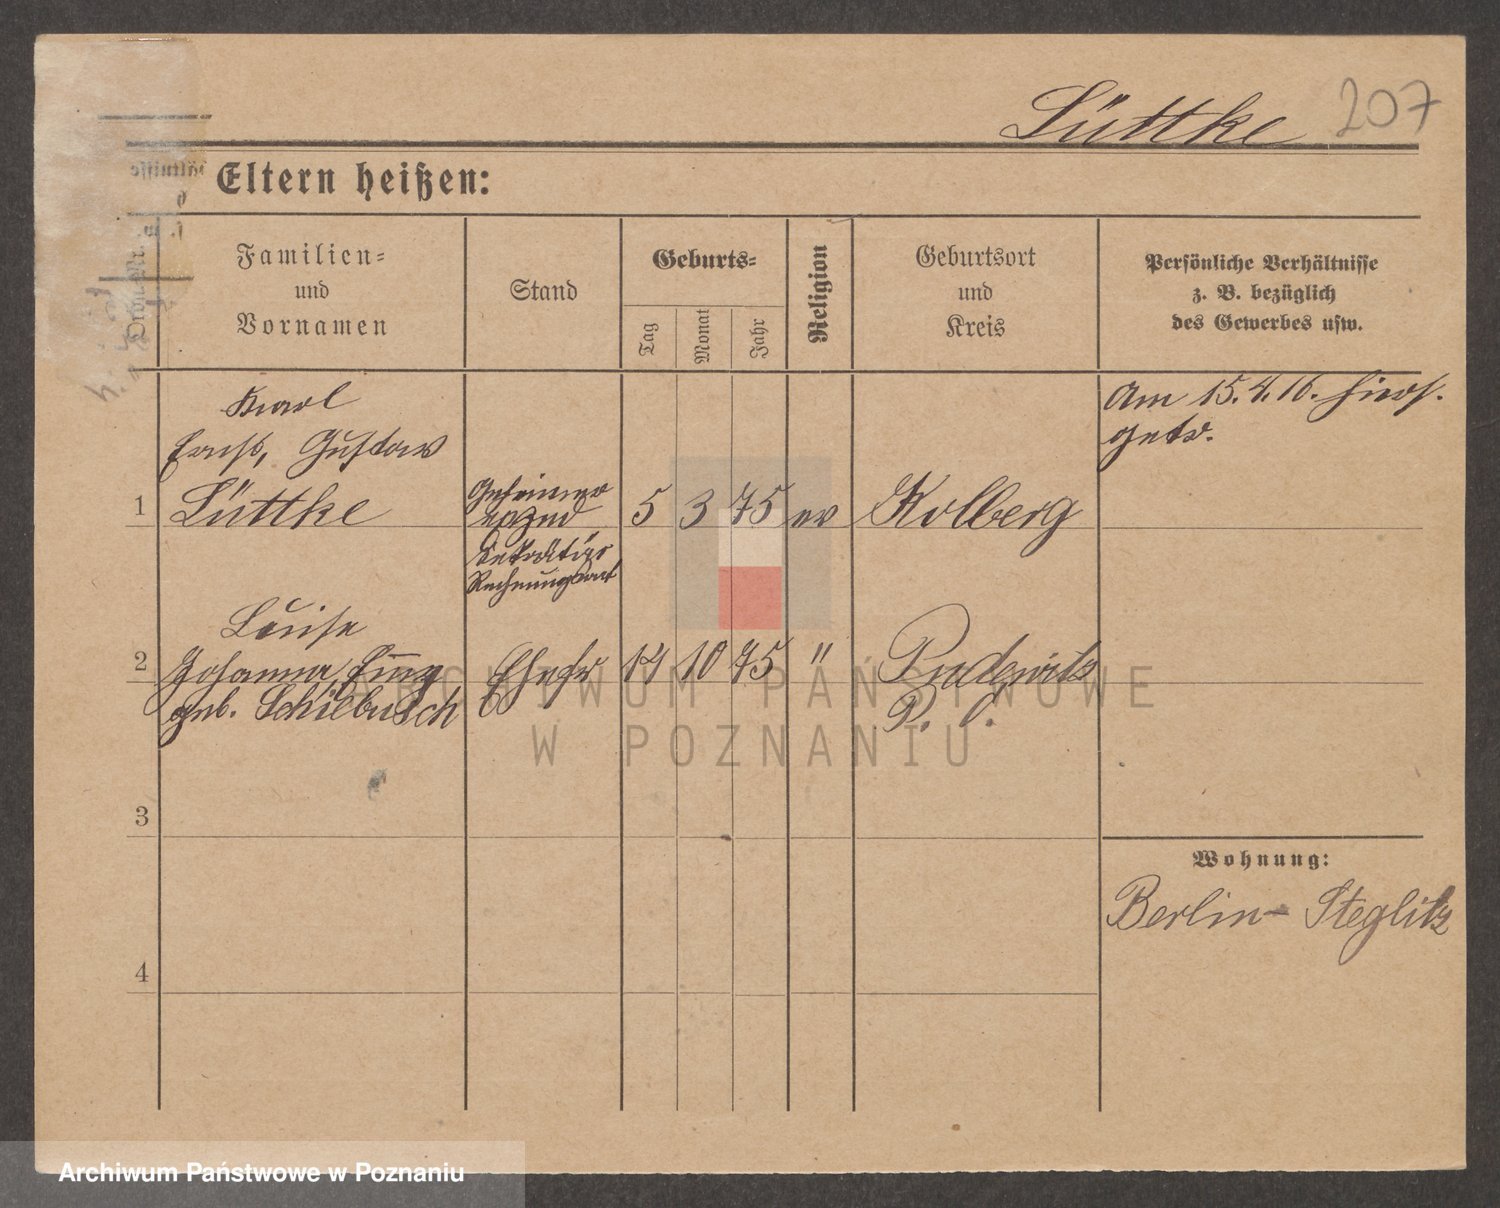 Lüttke 207
Eltern heißen:
Familien-
und
Vornamen
Stand
Geburts-
Tag
Monat
Jahr
Religion
Geburtsort
und
Kreis
Persönliche Verhältnisse
z. B. bezüglich
des Gewerbes usw.
Karl
Ernst, Gustav
1 Lüttke
Geheimer
exped
Sekretär
Rechnungsrat
5 3 75 ev Kolberg
Am 15.4.16. hiers.
getr.
Luise
2 Johanna, Emg
geb. Schilbusch
Ehefr 14 10 75 " Pudewitz
P. O.
3
4
Wohnung:
Berlin-Steglitz
ARCHIWUM PAŃSTWOWE
W POZNANIU
Archiwum Państwowe w Poznaniu